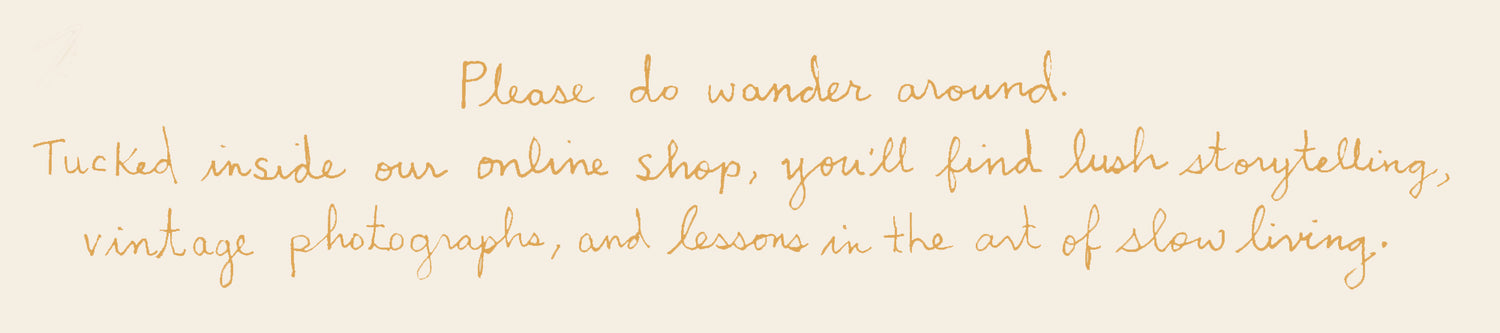 Please do wander around.
Tucked inside our online shop, you'll find lush storytelling,
vintage photographs, and lessons in the art of slow living.